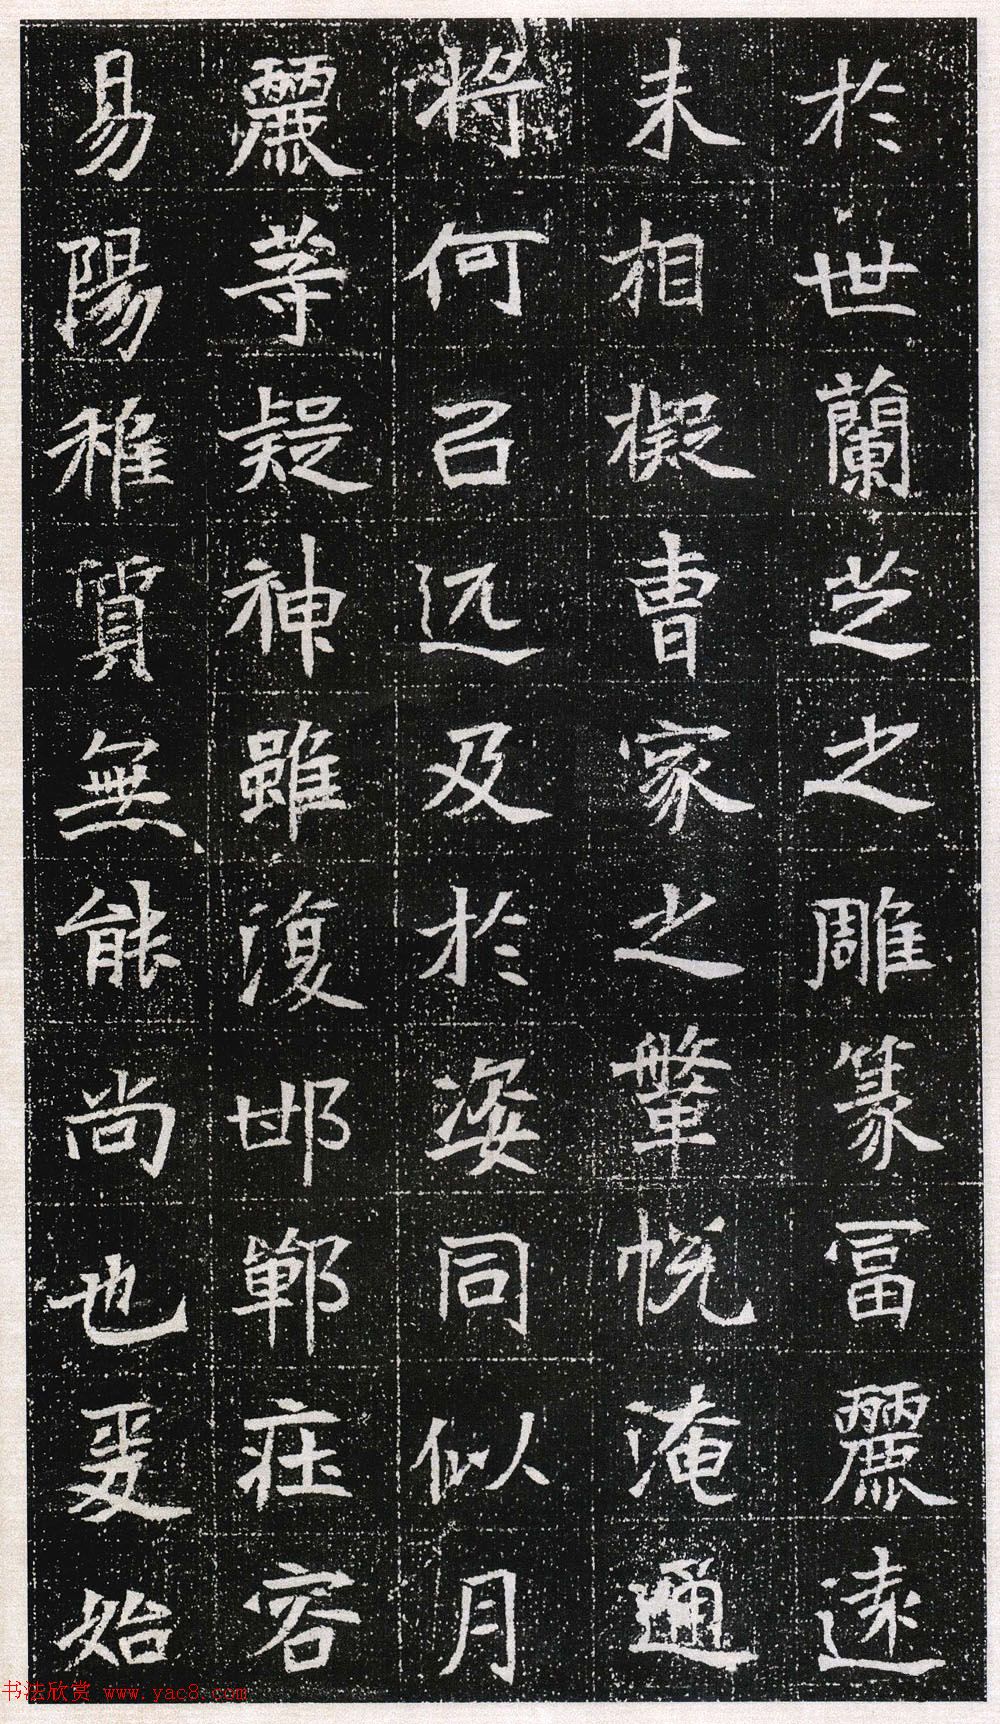 於世蘭芝之雕篆冨麗遠
未相擬曹家之鞶帨淹通
將何召远及於姿同似月
麗等疑神雖復邯鄲莊容
易陽稚質無能尚也爰始
书法欣赏 www.yac8.com